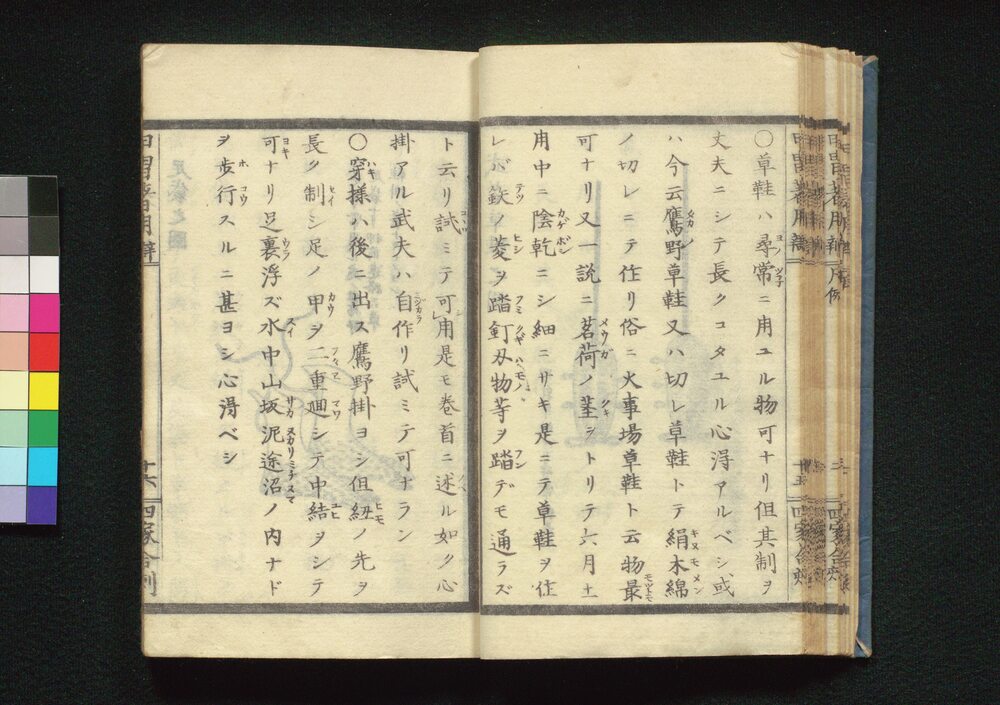 〇草鞋ハ尋常ニ用ユル物可ナリ但其制ヲ
丈夫ニシテ長クコタユル心得アルベシ或
ハ今云鷹野草鞋又ハ切レ草鞋トテ絹木綿
ノ切レニテ作リ俗ニ火事場草鞋ト云物最
可ナリ又一説ニ茗荷ノ茎ヲトリテ六月土
用中ニ陰乾ニシ細ニサキ是ニテ草鞋ヲ作
レバ鉄ノ菱ヲ踏釘刄物等ヲ踏デモ通ラズ
ト云リ試ミテ可用是モ巻首ニ述ル如ク心
掛アル武夫ハ自作リ試ミテ可ナラン
〇穿様ハ後ニ出ス鷹野掛ヨシ但紐ノ先ヲ
長ク制シ足ノ甲ヲ二重廻シテ中結ヲシテ
可ナリ足裏浮ズ水中山坂泥途沼ノ内ナド
ヲ歩行スルニ甚ヨシ心得ベシ
甲冑着用辨
十六
四家合刻